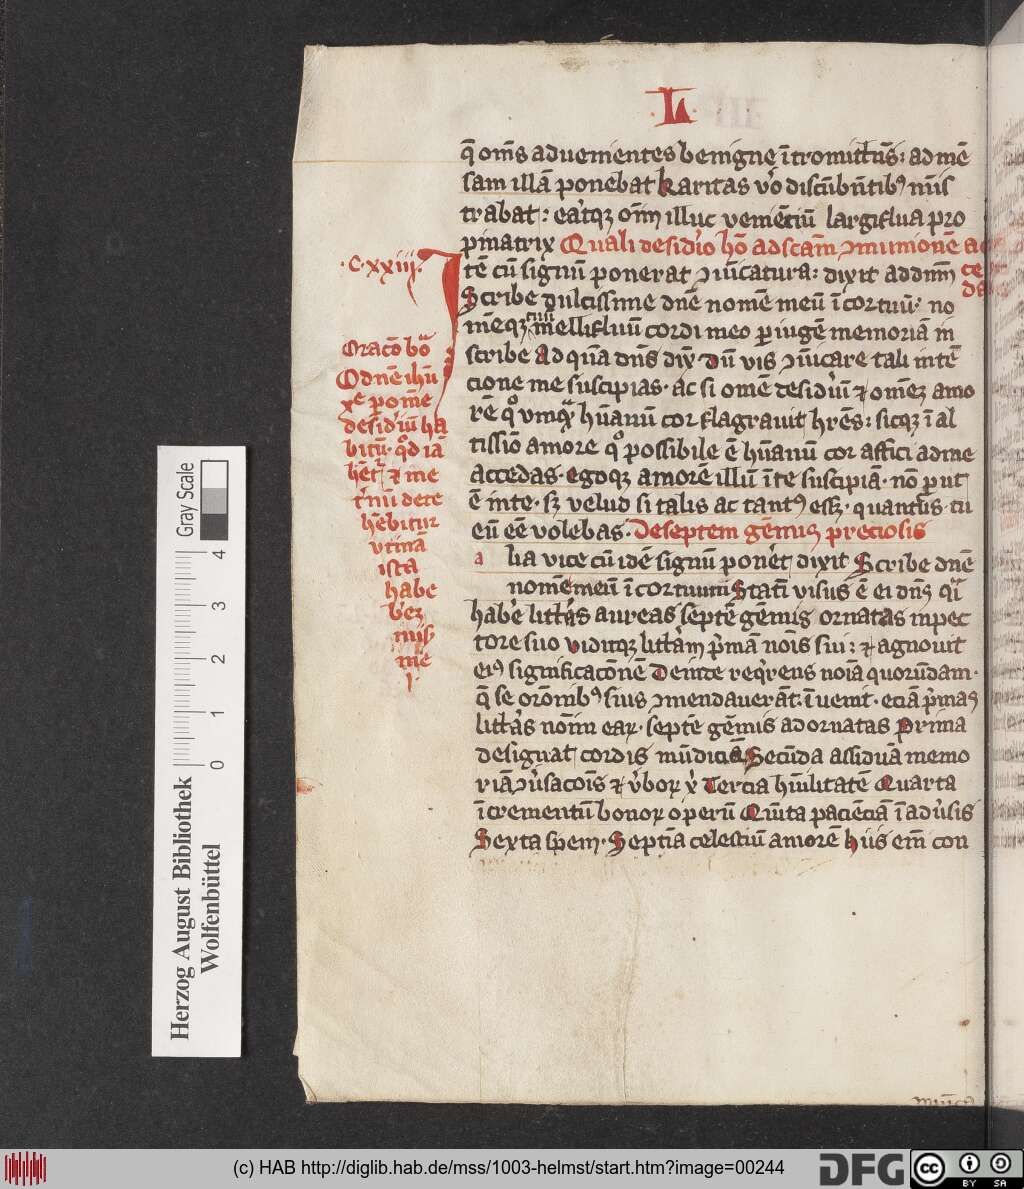 L
q̄ om̄s aduenientes benigne ītromittꝉn̄s: ad mē
sam illā ponebat karitas v̓o discūbn̄tib⁹ mīs
trabat: eātqꝫ om̄ı illuc veniētiū largiflua pro
pinatrix Quali desid̓io hō ad scam̄ ɔmunionē ac
ce
dat
.C.xxiij.
Itē cū signū ponerat ɔiūcatura: dixit ad dnm̄
Scribe dulcissime dn̄e nomē meū ī cor tuū. no
mēqꝫ tuū mellifluū cordi meo p iugē memoriā in
scribe Ad quā dn̄s dix̄ dū vis ɔiūicare tali intē
cione me suscipias. ac si omē desid̓iū ⁊ omēꝫ amo
rē q̊ vmqᷓ hūanū cor flagrauit hr̄es: sicqꝫ ī al
tissīo amore q̊ possibile ē hūanū cor affici ad me
accedas. egoqꝫ amorē illū ī te suscipiā. nō put
ē in te. sꝫ velud si talis ac tant⁹ essꝫ. quantus tu
eū eē volebas. De septem gēmis preciosis
a lia vice cū idē signū ponēt dixit Scribe dn̄e
nomē meū ī cor tuum Statī visus ē ei dn̄s qi
habe̓ litt̓as aureas septē gēmis ornatas in pec
tore suo viditqꝫ litt̓am p̓mā nois sui: ⁊ agnouit
ei⁹ significacōnē Deinte req̓rens noīa quorūdam.
q̄ se or̄onib⁹ suis ɔmendauerāt. īuenit. eciā p̓mas
litt̓as noīm eaꝝ. septē gēmis adornatas Prima
designat cordis mūdiciā Secūda assiduā memo
riā ɔu̓sacoīs ⁊ v̓boꝝ x̓ Tercia hūilitatē Quarta
īcrementū bonoꝝ operū Quīta paciēciā ī adu̓sis
Sexta spem. Septīa celestiū amorē hiis em̄ con
Oracō bōa
O dn̄e ihū
xp̄e p omē
desid̓iū ha
bitū. qd̓ iā
hēt̄ ⁊ me
t̓nū dete
hēbitur
vtinā
ista
habe
bēꝫ
mīs
mē
Herzog August Bibliothek
Wolfenbüttel
Gray Scale
0 1 2 3 4
(c) HAB http://diglib.hab.de/mss/1003-helmst/start.htm?image=00244
DFG
cc BY SA